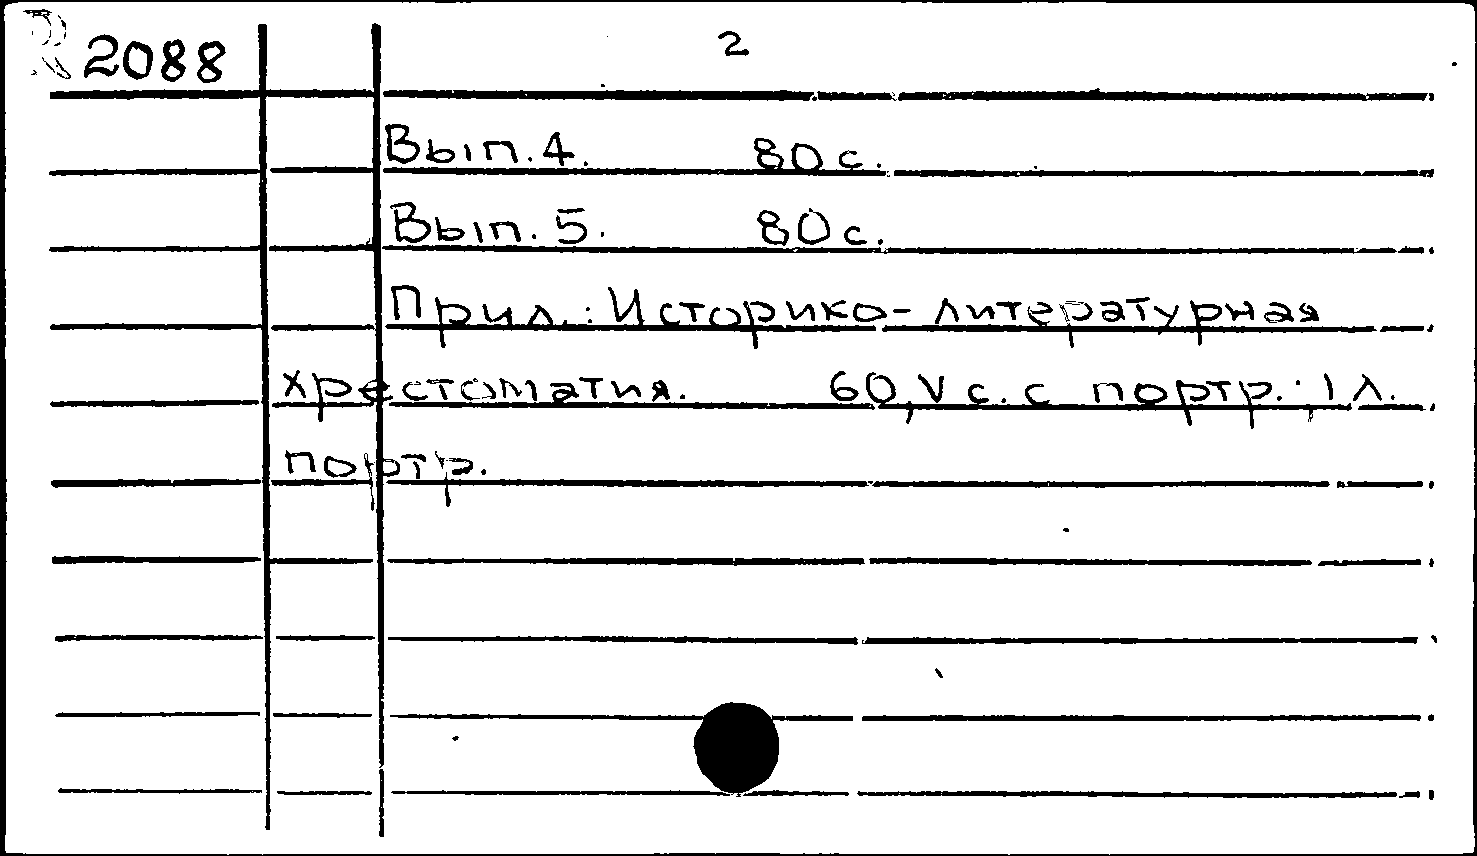 R 2088
2
Вып. 4. 80 с.
Вып. 5. 80 с.
Прил.: Историко-литературная
хрестоматия. 60, V с. с портр.; 1 л.
портр.